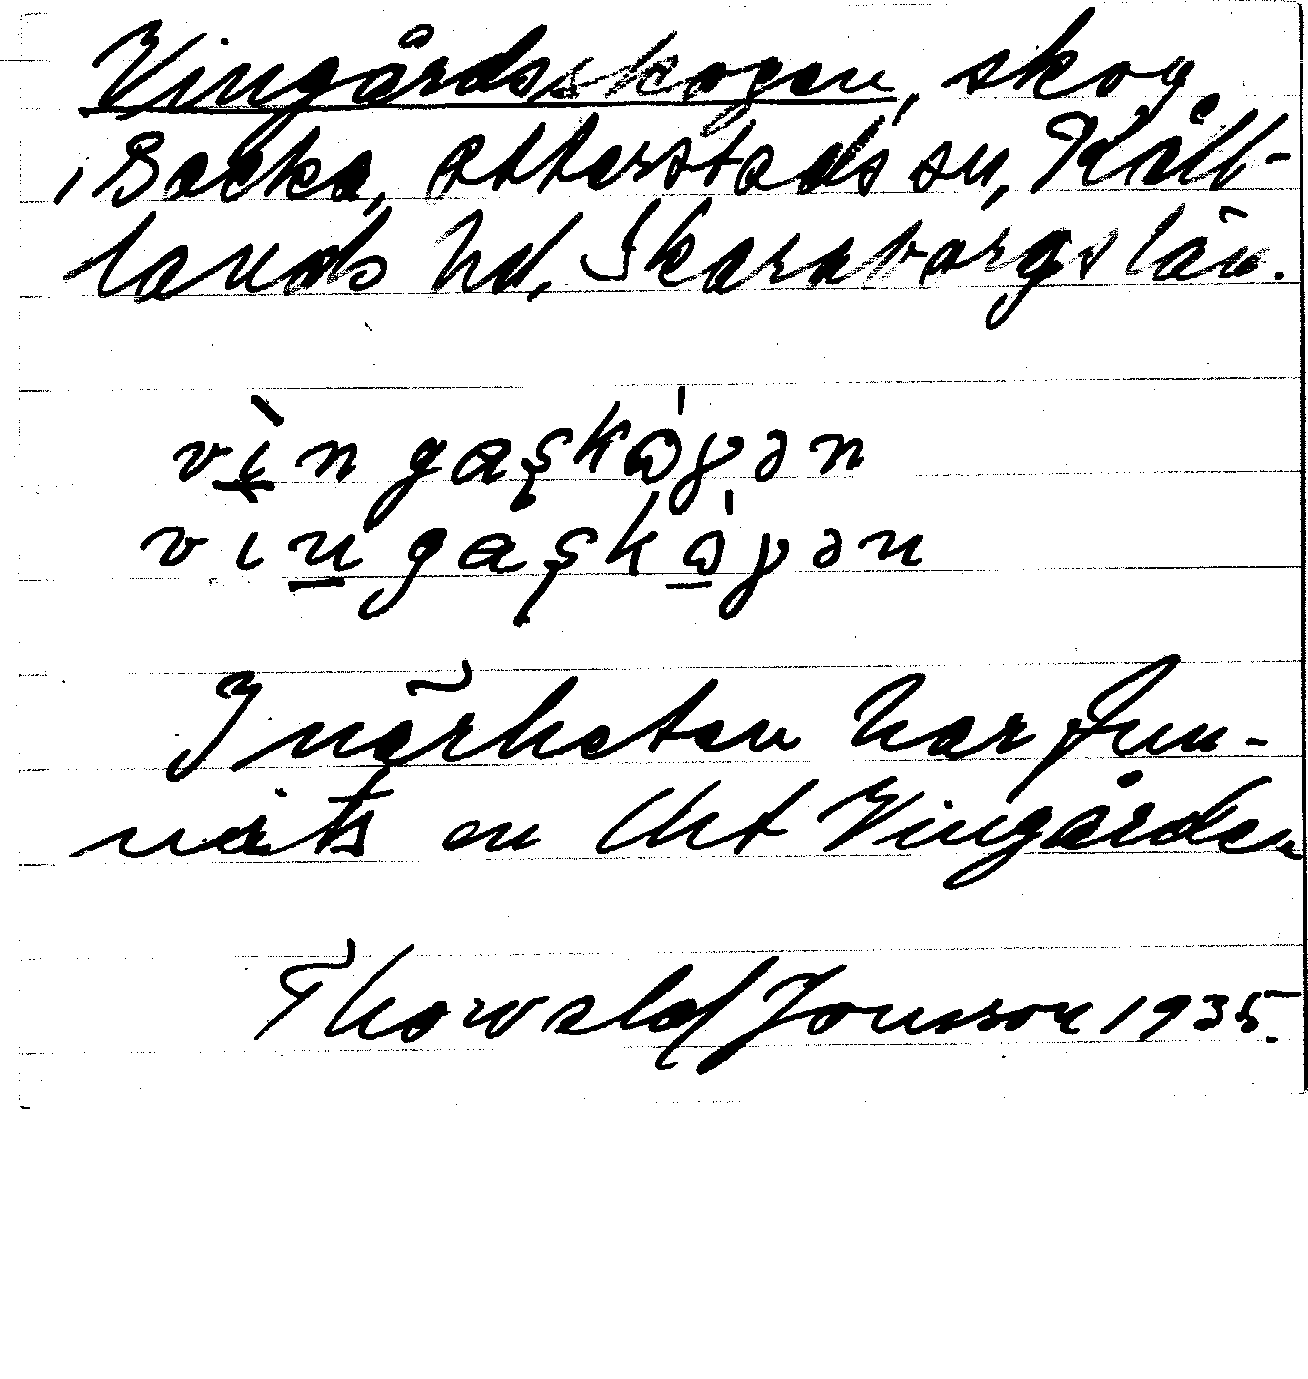 Vingårdsskogen, skog
i Backa, Otterstads sn, Kåll-
lands hd, Skaraborgs län.
vìngaşkɷ́γən
vìngaşkɷ̀γən
I närheten har fun-
nits en lht Vingården
Thorvald Jonsson 1935.